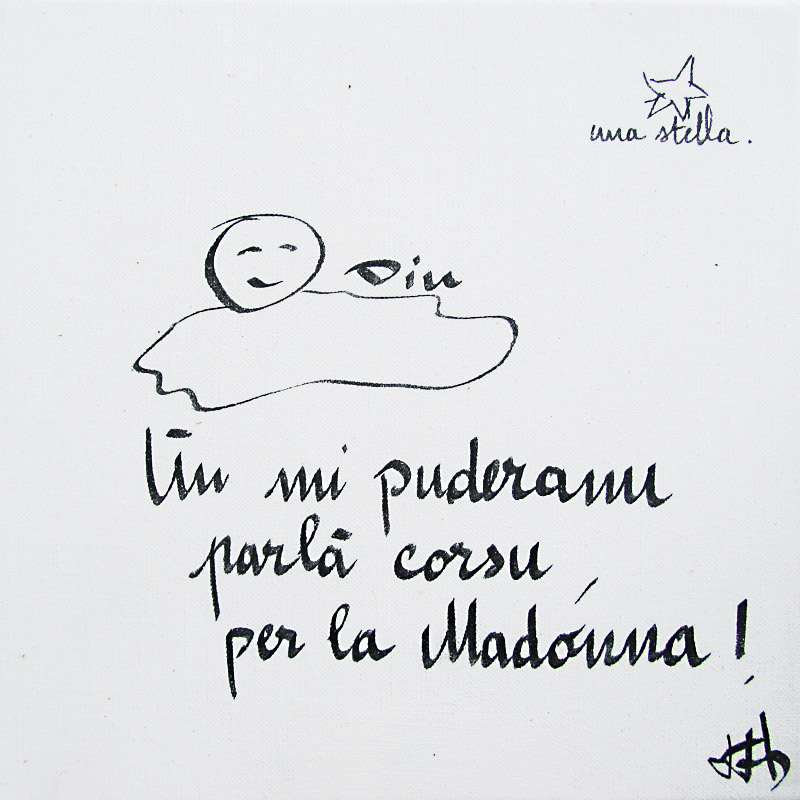 una stella.
Diu
Ūn mi puderanu
parlā corsu
per la Madónna !